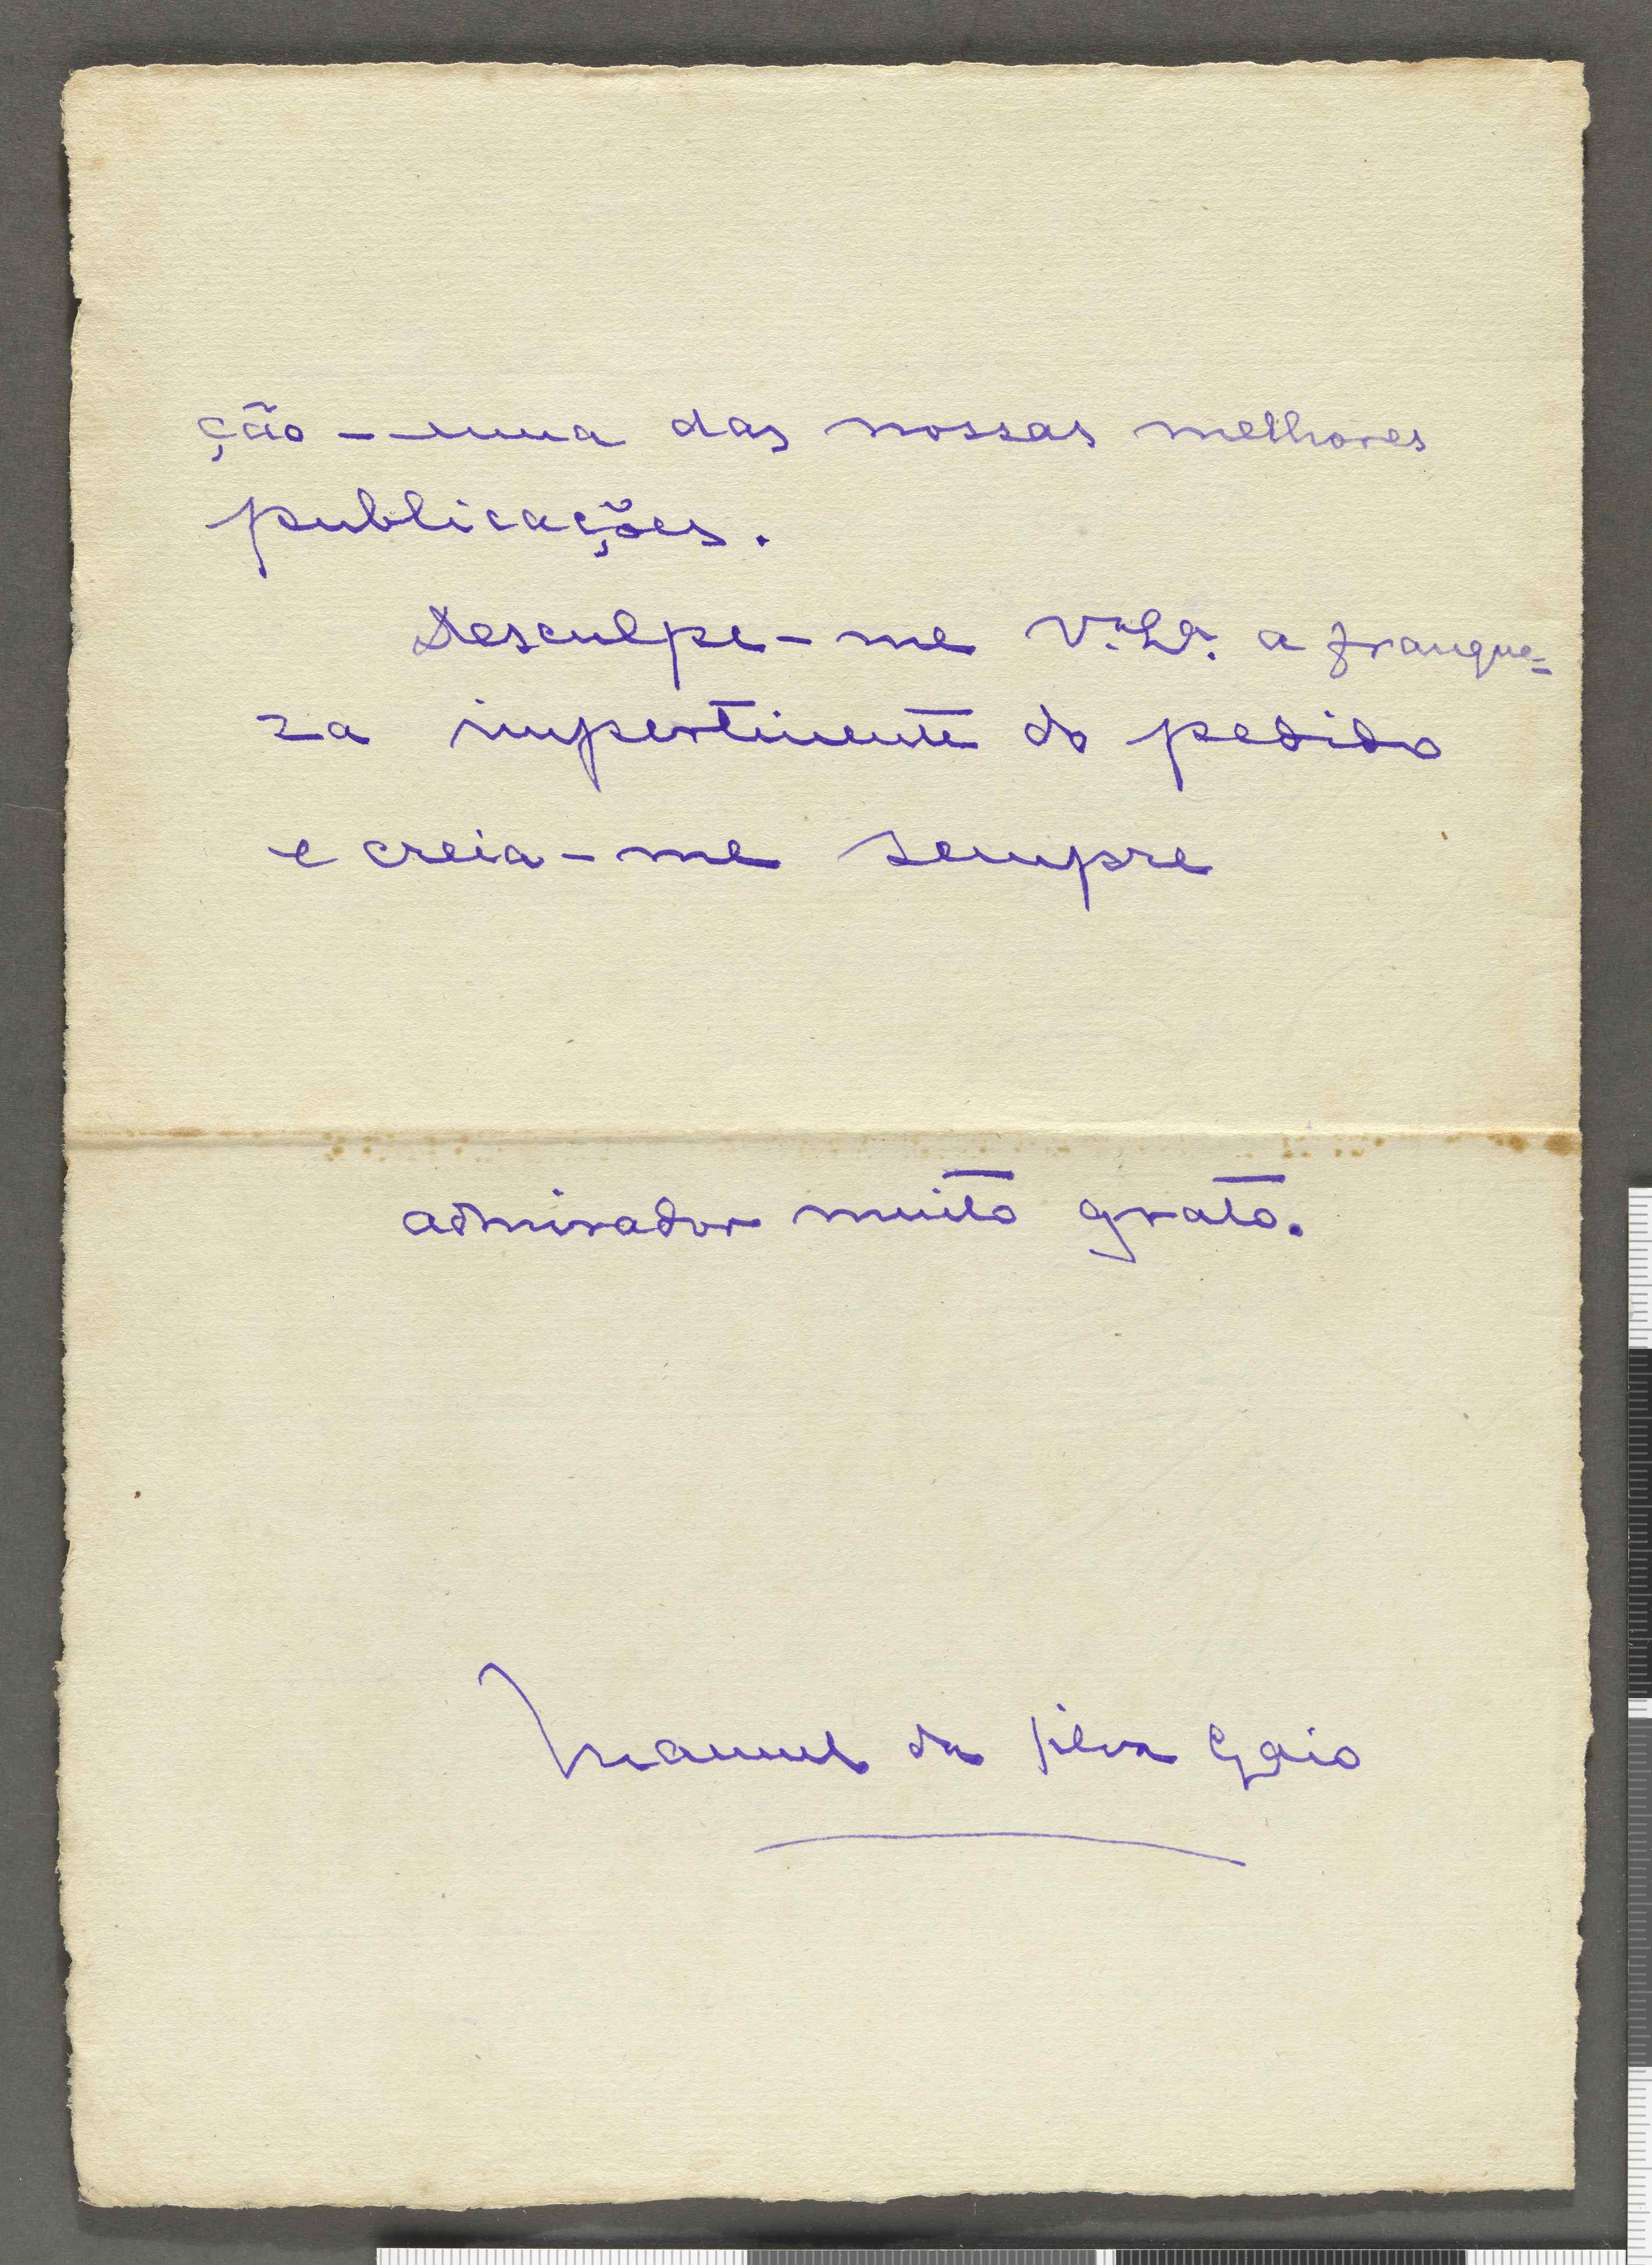 ção – uma das nossas melhores
publicações.
Desculpe-me V. a franque=
za impertinente do pedido
e creia-me sempre
admirador muito grato.
Manuel da Silva Gaio